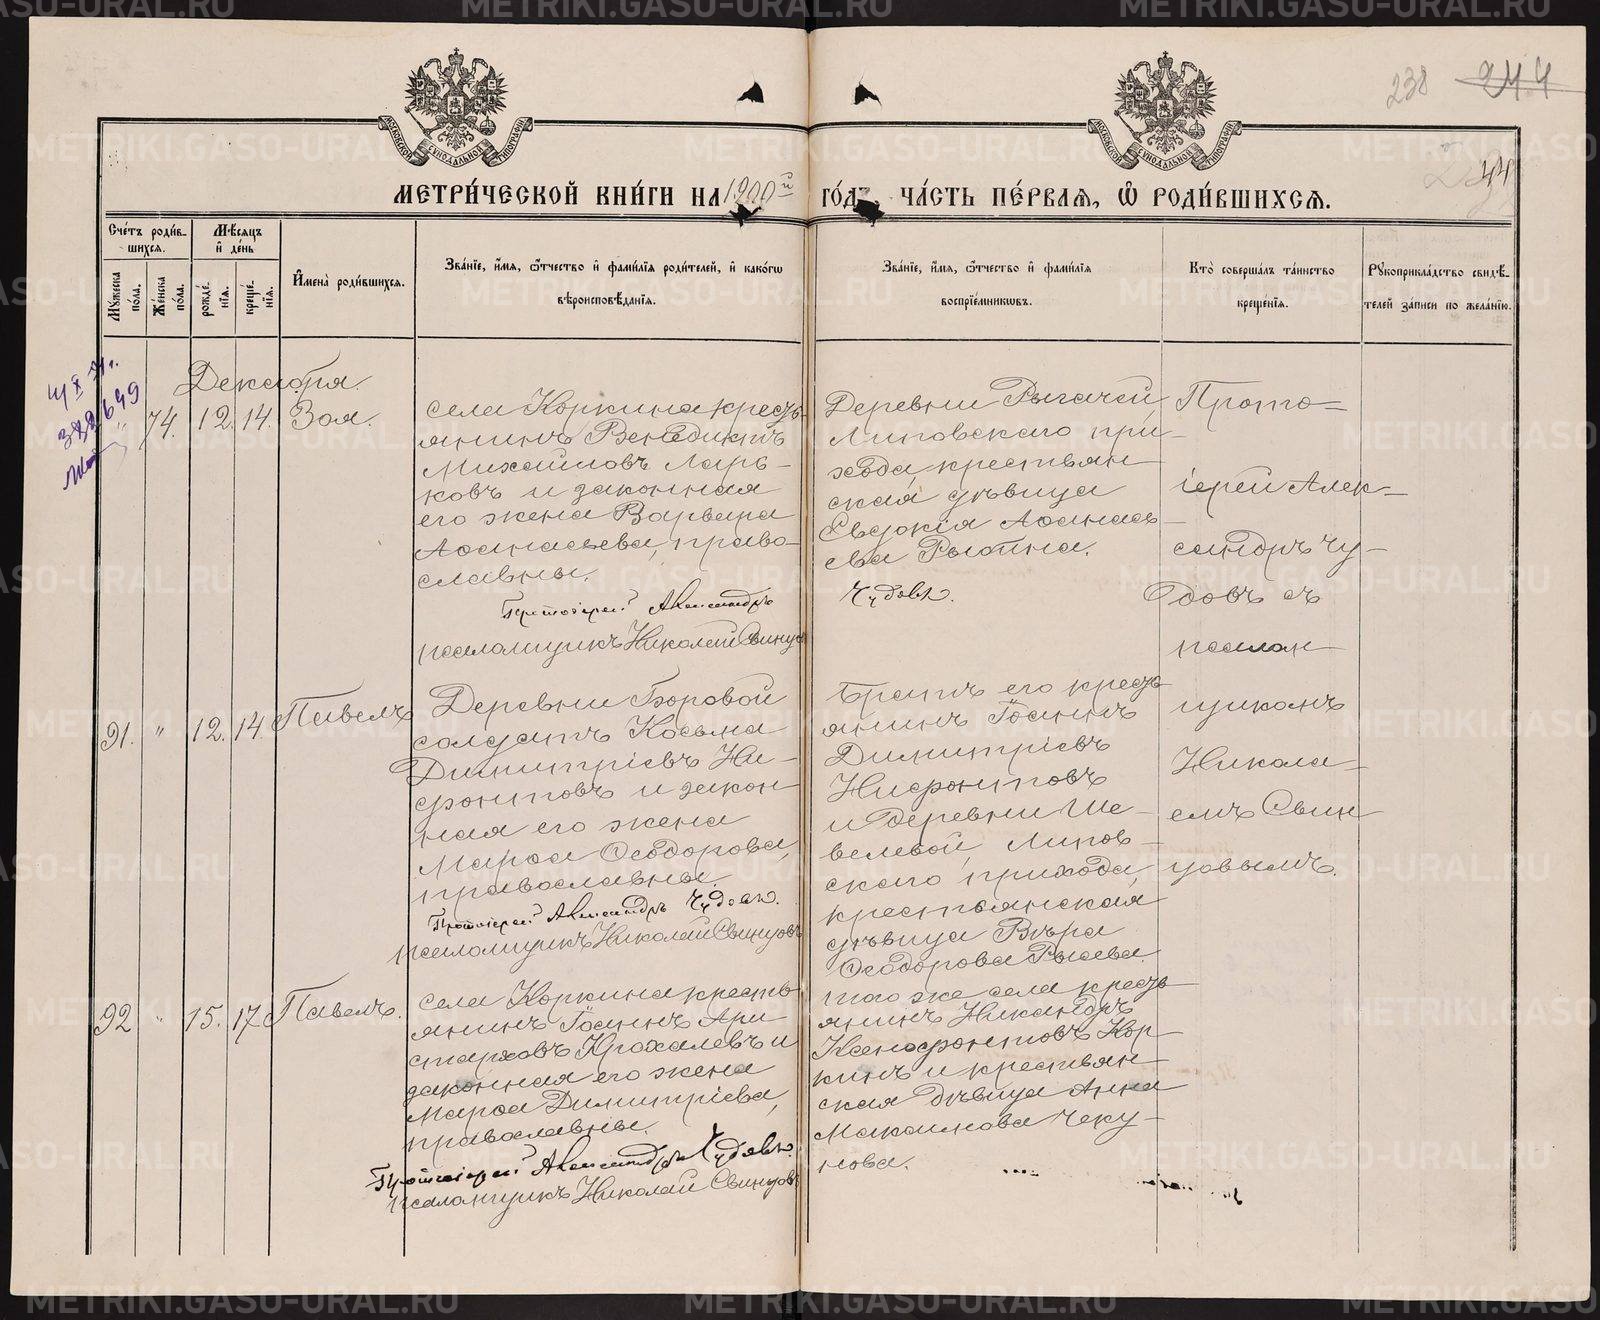 238 244
МОСКОВСКОЙ СѴНОДАЛЬНОЙ ТИПОГРАФІИ
МОСКОВСКОЙ СѴНОДАЛЬНОЙ ТИПОГРАФІИ
МЕТРИ́ЧЕСКОЙ КНИ́ГИ НА 1900й ГО́ДЪ, ЧА́СТЬ ПЕ́РВАЯ, Ѡ РОДИ́ВШИХСЯ.
Сче́тъ роди́в-
шихся.
Мѣ́сяцъ
и де́нь
Му́жеска по́ла.
Же́нска по́ла.
рожде́нїя.
креще́нїя.
Имена̀ роди́вшихся.
Зва́нїе, и́мя, ѻ́тчество и фами́лїя роди́телей, и како́гѡ
вѣроисповѣ́данїя.
Зва́нїе, и́мя, ѻ́тчество и фами́лїя
воспрїе́мникѡвъ.
Кто̀ соверша́лъ та́инство
креще́нїя.
Рꙋкоприкла́дство свидѣ́-
телей за́писи по жела́нїю.
Декабря.
" 74. 12. 14. Зоя.
села Коркина кресть-
янинъ Венедиктъ
Михаиловъ Ларь-
ковъ и законная
его жена Варвара
Аѳанасьева, право-
славны.
Протоіерей Александръ Чудовъ.
псаломщикъ Николай Свинцов
Деревни
Липовскаго при-
хода, крестьян
ская дѣвица
Евдокія Аѳанась-
ева
Прото-
іерей Алек-
сандръ Чу-
довъ съ
псалом-
щикомъ
Никола-
емъ Свин
цовымъ.
91. " 12. 14 Павелъ
Деревни Боровой
солдатъ Косьма
Димитріевъ Ни-
фонтовъ и закон
ная его жена
Марѳа Ѳеодорова,
православны.
Протоіерей Александръ Чудовъ.
псаломщикъ Николай Свинцовъ
Братъ его кресть
янинъ Іоаннъ
Димитріевъ
Нифонтовъ
и деревни Ше-
велевой, Липов-
скаго прихода,
крестьянская
дѣвица Вѣра
Ѳеодорова
92 " 15. 17 Павелъ.
села Коркина кресть-
янинъ Іоаннъ Ари
старховъ Крохалевъ и
законная его жена
Марѳа Димитріева,
православны.
Протоіерей Александръ Чудовъ.
псаломщикъ Николай Свинцовъ
того же села кресть
янинъ Никандръ
Ксенофонтовъ Кор-
кинъ и крестьян
ская дѣвица Анна
Максимова Чеку-
нова.
METRIKI.GASO-URAL.RU